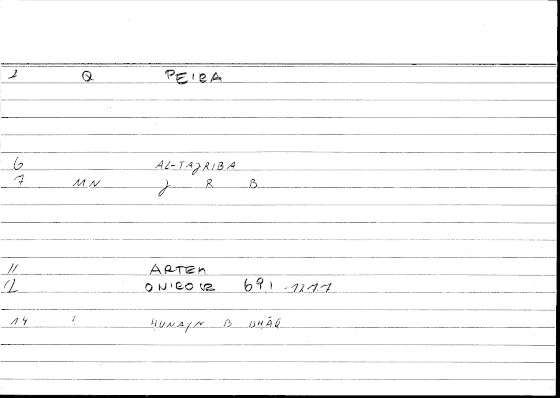 2 Q PEIRA
6 AL-TAJRIBA
7 MN J R B
11 ARTEM
12 ONIROCR 691 .1277
14 ? HUNAYN B ISHĀQ